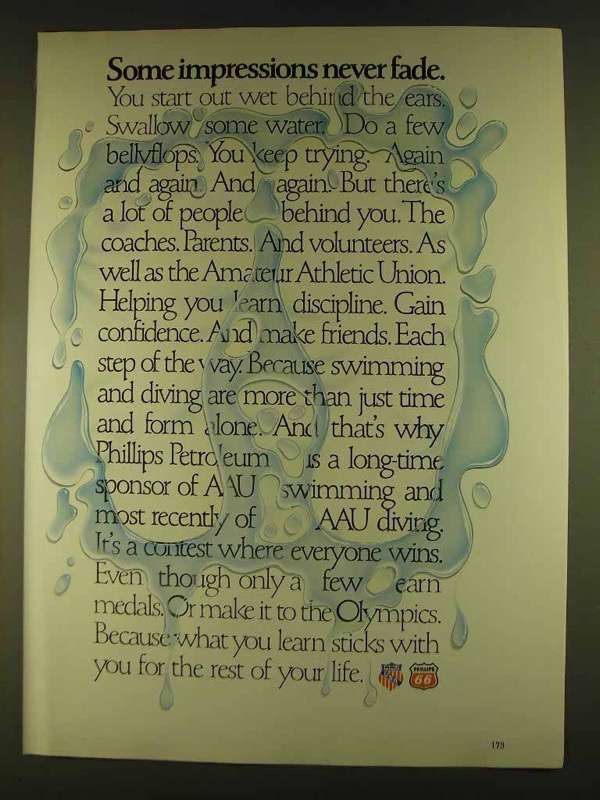 Some impressions never fade.
You start out wet behind the ears.
Swallow some water. Do a few
bellyflops. You keep trying. Again
and again. And again. But there's
a lot of people behind you. The
coaches. Parents. And volunteers. As
well as the Amateur Athletic Union.
Helping you learn discipline. Gain
confidence. And make friends. Each
step of the way. Because swimming
and diving are more than just time
and form alone. And that's why
Phillips Petroleum is a long-time
sponsor of AAU swimming and
most recently of AAU diving.
It's a contest where everyone wins.
Even though only a few earn
medals. Or make it to the Olympics.
Because what you learn sticks with
you for the rest of your life.
PHILLIPS
66
173